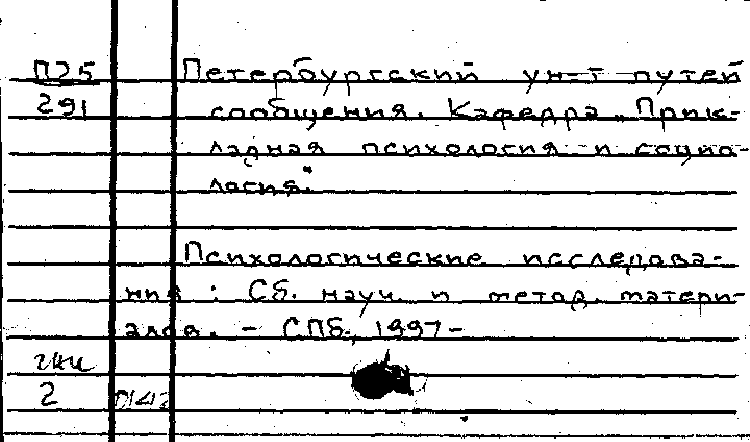 П25 Петербургский ун-т путей
291 сообщения. Кафедра „Прик-
ладная психология и социо-
логия"
Психологические исследова-
ния : Сб. науч. и метод. матери-
алов. - СПб., 1997-
2